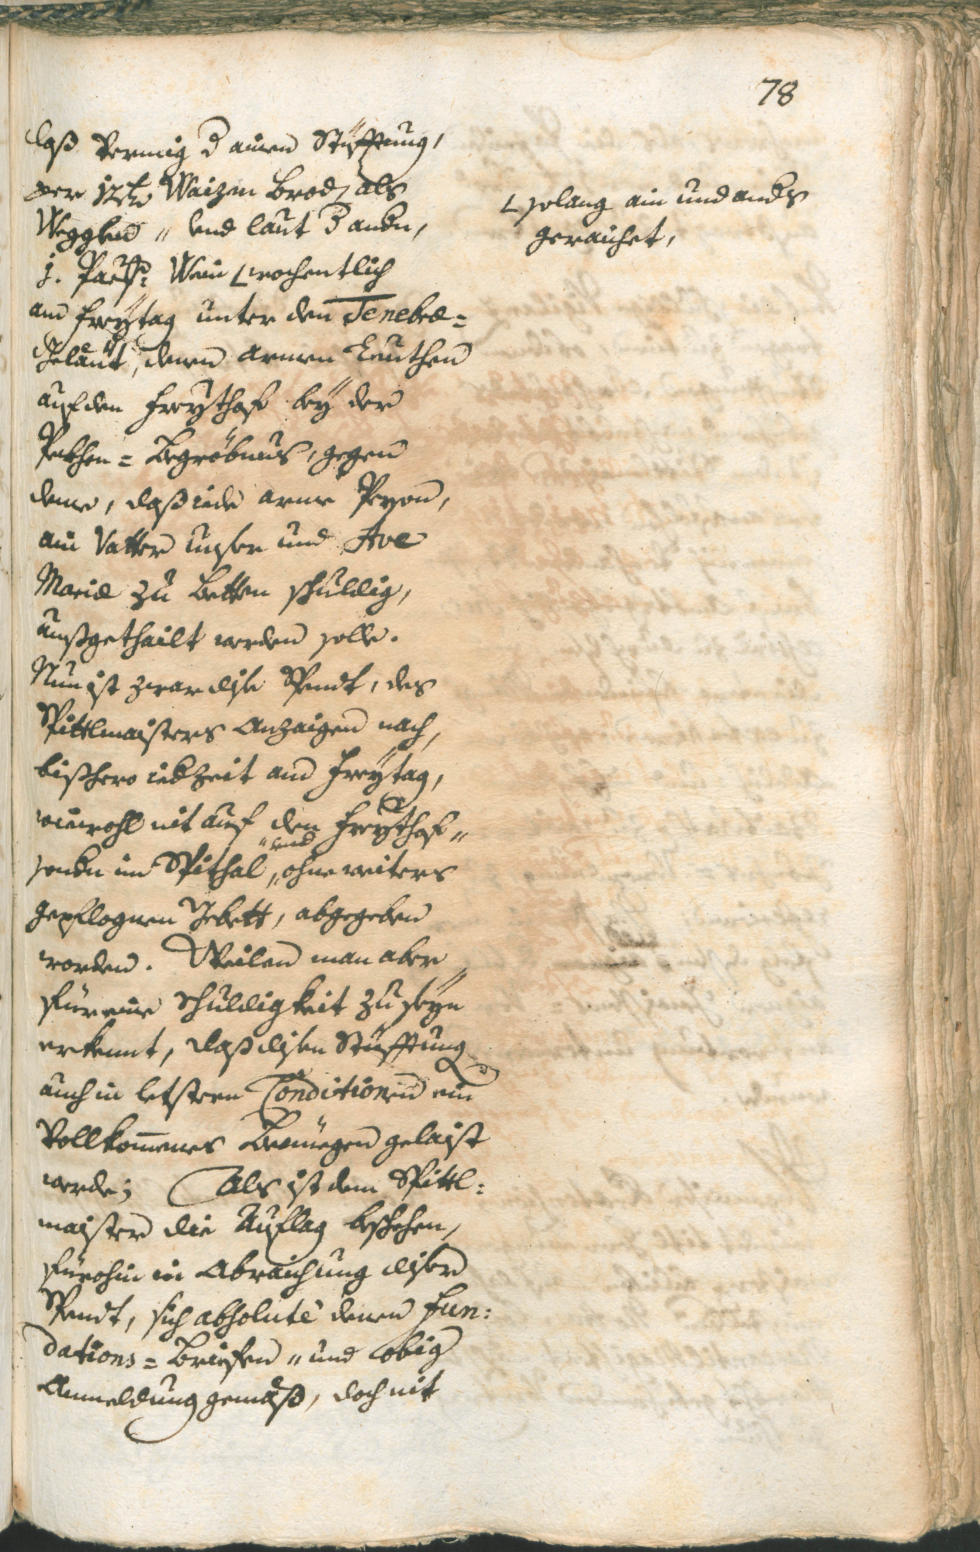 78
daß vermig d ainen Stüfftung,
per 12 kr Waizen Brodt, als
Weggled „ und laut d andn,
j. Wein wochentlich
am Freÿtag unter den Tenebræ=
Geläut, denen armen Leüthen
auf den Freÿthof beÿ der
Begröbnus, gegen
deme, daß iede arme Person,
ain Vatter unser und Ave
Mariæ zu betten schuldig,
außgethailt werden solle.
Nun ist zwar dise Spendt, des
Spittlmaisters Anzaigen nach,
bißhero iedzeit am Freÿtag,
wiewohl nit auf den Freÿthof„
sondn im Spithal, „und ohne weiters
gepflognen Gebett, abgegeben
worden. Weilen man aber
für eine Schuldigkeit zu seÿn
erkennt, daß disen Stüfftung
auch in letstern Conditionen ein
Vollkom̄enes Benüegen gelaist
werde; Als ist dem Spittl=
maister die Auflag beschehen,
fürohin in Abraichung diser
Spendt, sich absolutè denen Fun=
dations=Briefen „ und obig
Anmeldung gemäß, doch nit
solang ain und anders
geraichet,